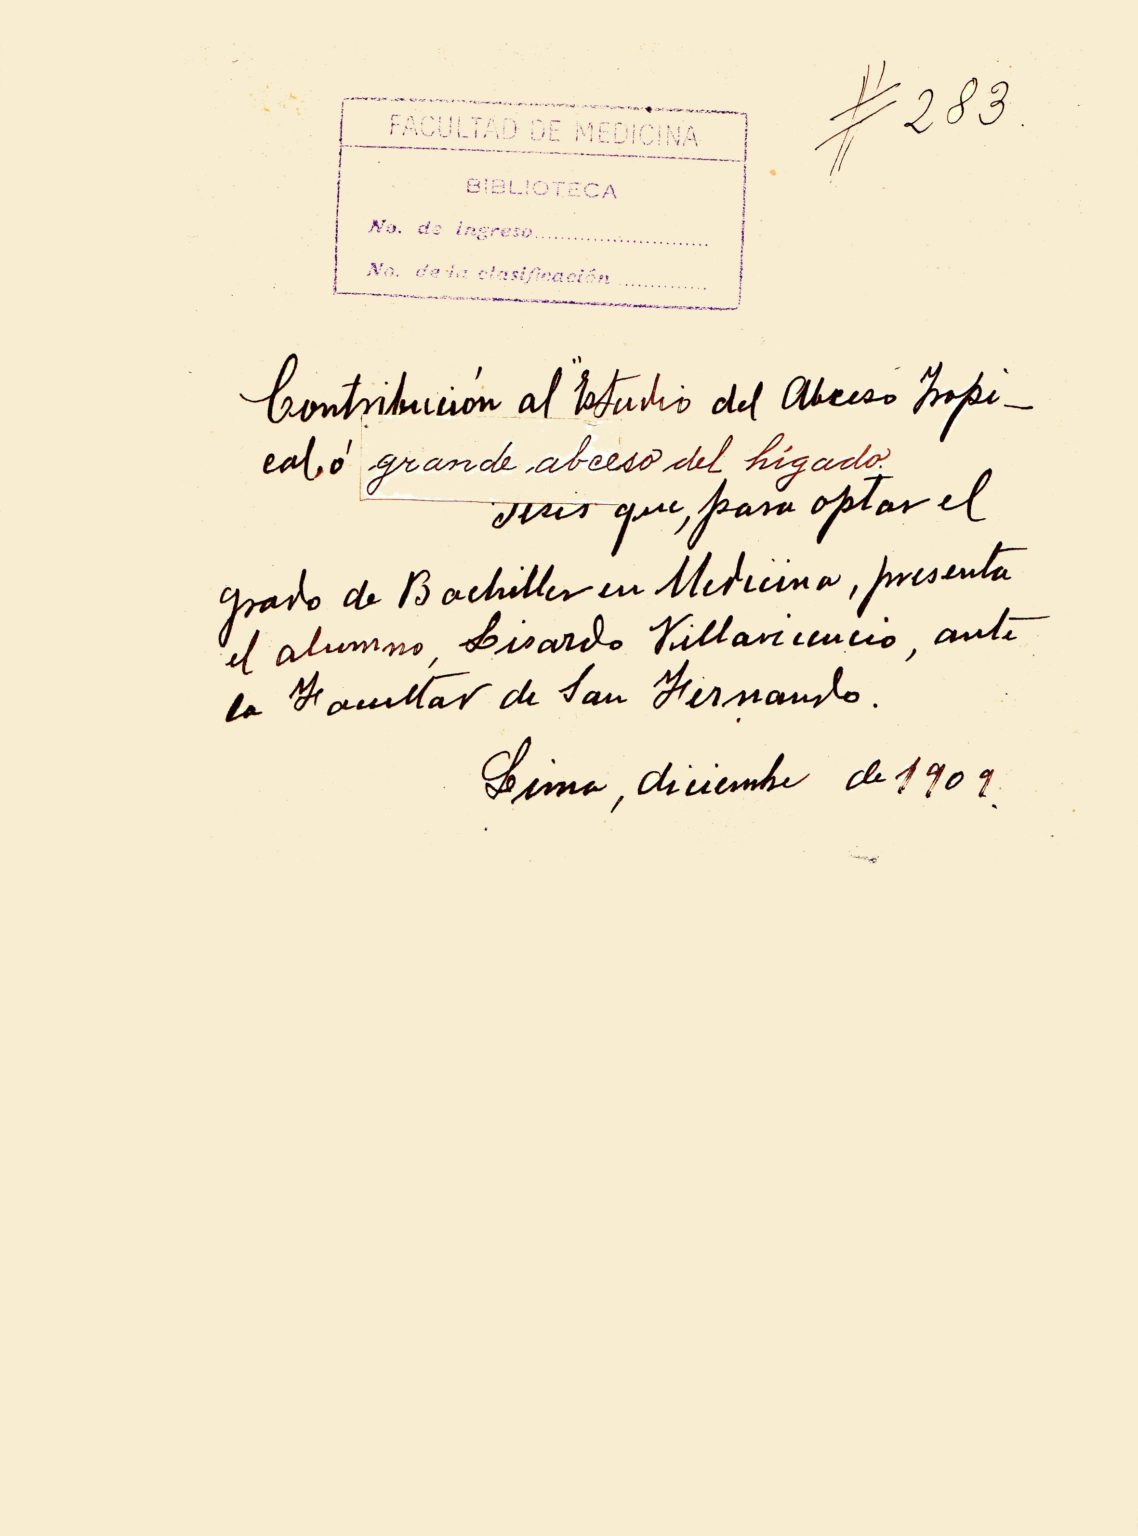 # 283.
FACULTAD DE MEDICINA
BIBLIOTECA
No. de ingreso..............................
No. de la clasificación ...............
Contribución al "Estudio del Abceso Tropi-
cal, ó grande abceso del hígado.
Tesis que, para optar el
grado de Bachiller en Medicina, presenta
el alumno, Lisardo Villavicencio, ante
la Facultad de San Fernando.
Lima, diciembre de 1909.